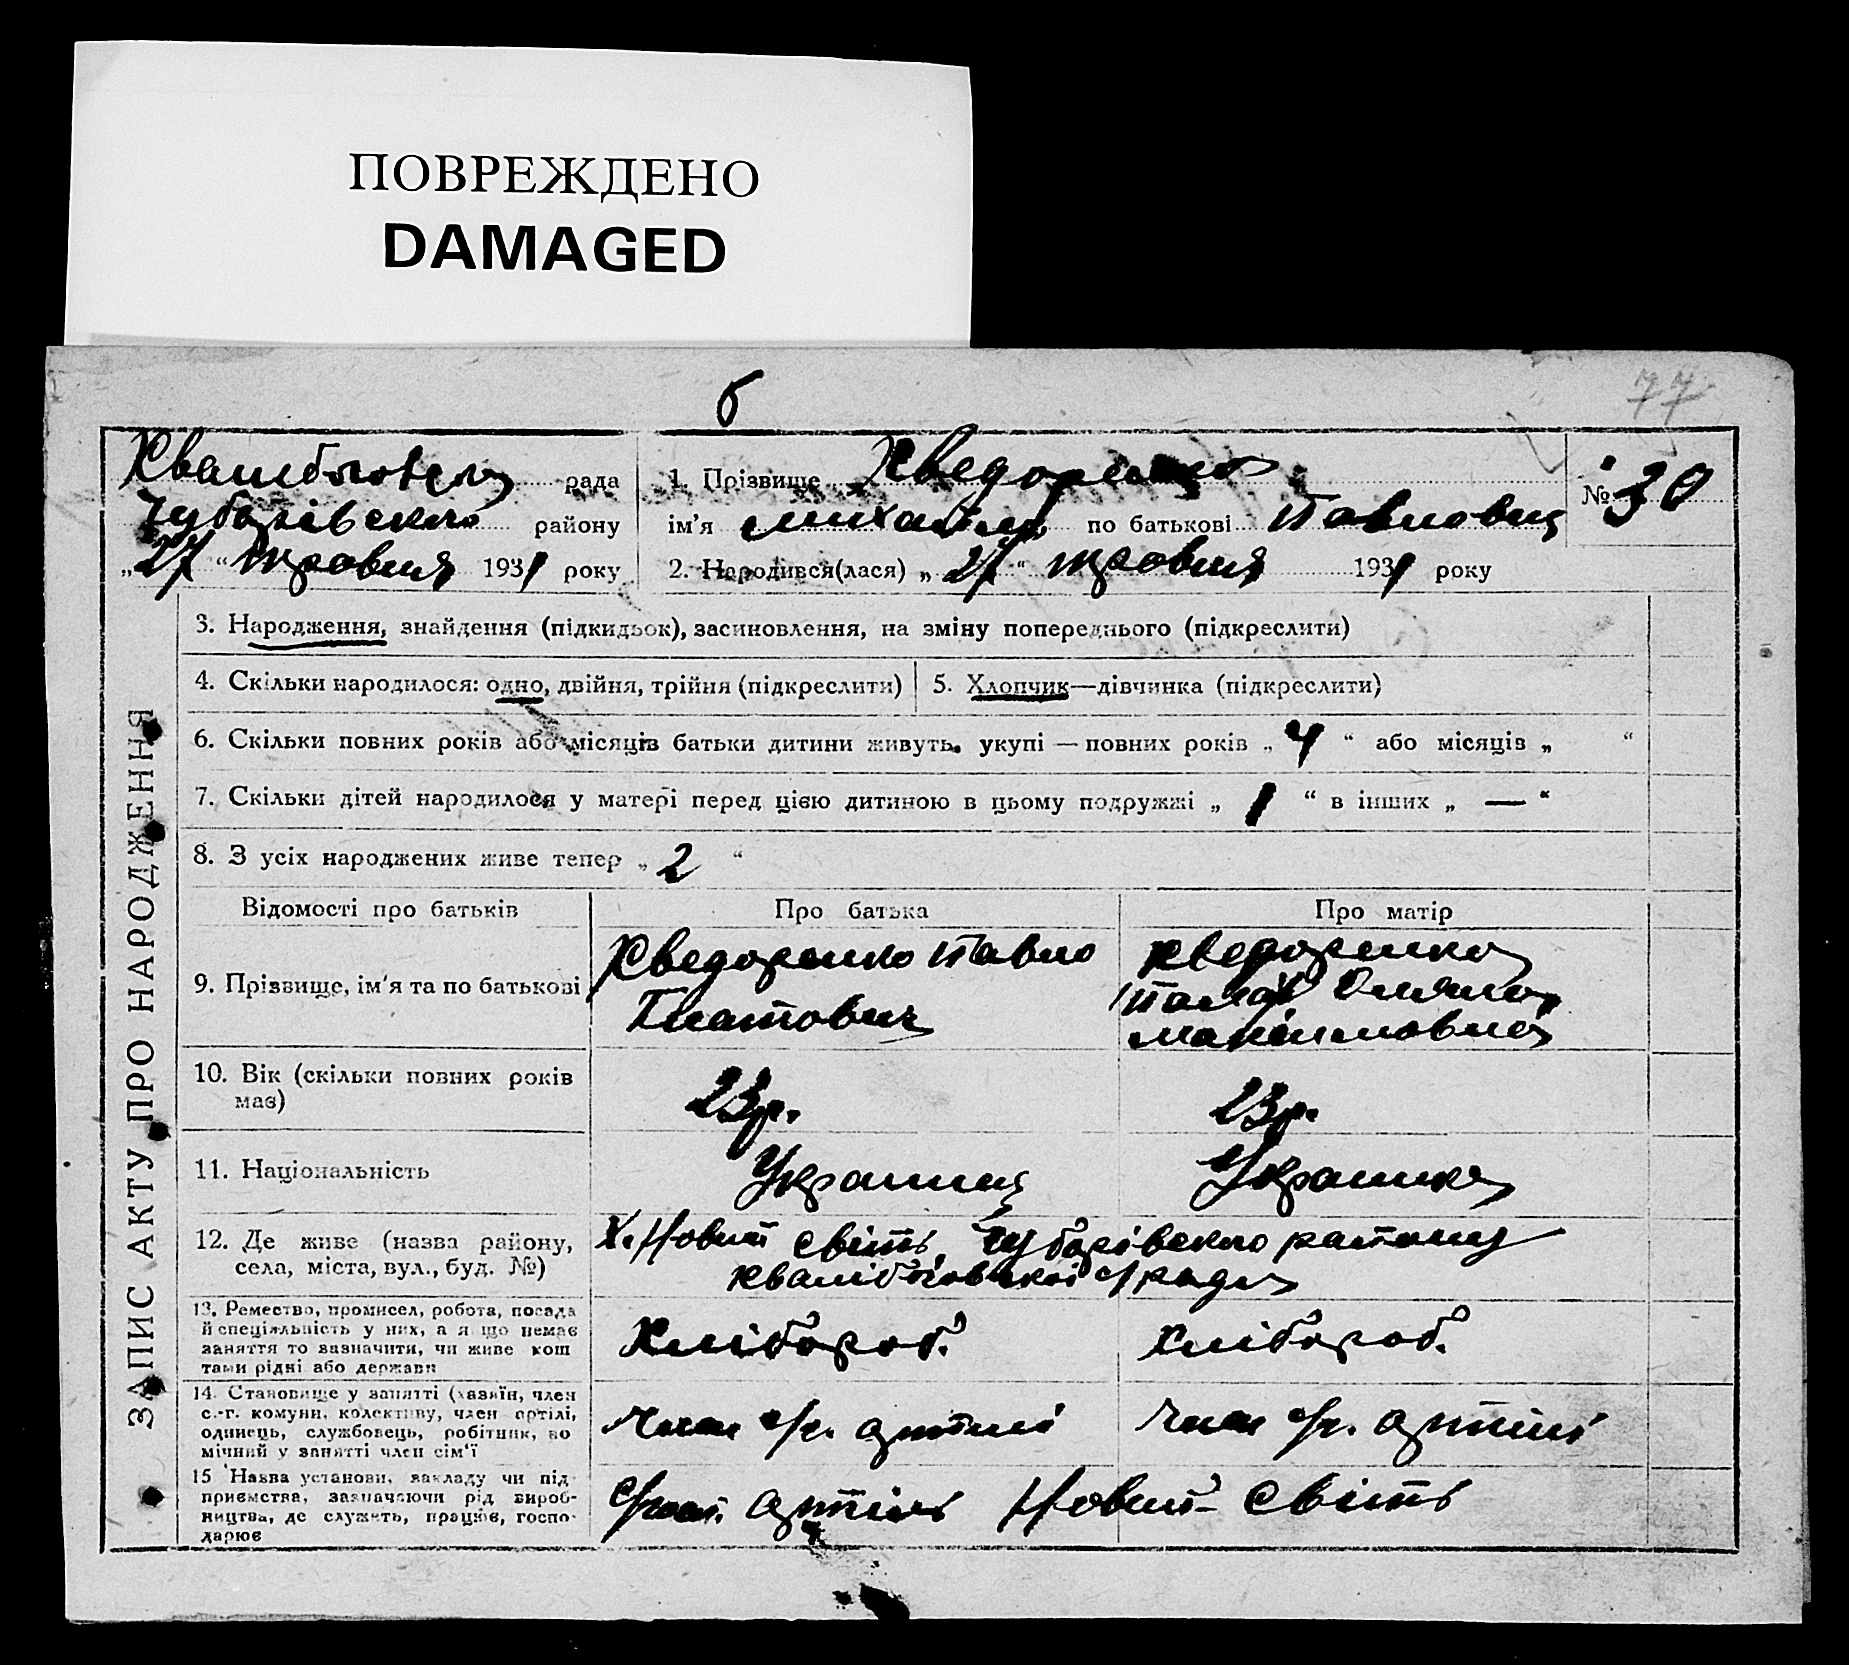 ПОВРЕЖДЕНО
DAMAGED
б
77
рада
Чубарівского району
„27“ травня 1931 року
1. Прізвище Хведоренко
ім’я Михайло по батькові Павловиц
2. Народився(лася) „27“ травня 1931 року
№ 30
ЗАПИС АКТУ ПРО НАРОДЖЕННЯ
3. Народження, знайдення (підкидьок), засиновлення, на зміну попереднього (підкреслити)
4. Скільки народилося: одно, двійня, трійня (підкреслити)
5. Хлопчик—дівчинка (підкреслити)
6. Скільки повних років або місяців батьки дитини живуть укупі — повних років „4“ або місяців „ “
7. Скільки дітей народилося у матері перед цією дитиною в цьому подружжі „1“ в інших „—“
8. З усіх народжених живе тепер „2“
Відомості про батьків Про батька Про матір
9. Прізвище, ім’я та по батькові
Хведоренко Павло
Гнатович
Хведоренко
Оляна
Максимовна
10. Вік (скільки повних років
має)
23р. 23р.
11. Національність Украинец Украинка
12. Де живе (назва району,
села, міста, вул., буд. №)
Х. Новий світь, Чубарівского района
с/ради
13. Ремество, промисел, робота, посада
й спеціяльність у них, а якщо немає
заняття то зазначити, чи живе кош
тами рідні або держави
Хлібороб. Хлібороб.
14. Становище у занятті (хазяїн, член
с.-г. комуни, колективу, член артілі,
одинець, службовець, робітник, по
мічний у занятті член сім’ї
Член с/г. артілі Член с/г. артілі
15 Назва установи, закладу чи під-
приємства, зазначаючи рід вироб-
ництва, де служить, працює, госпо-
дарює
артіль Новий світь